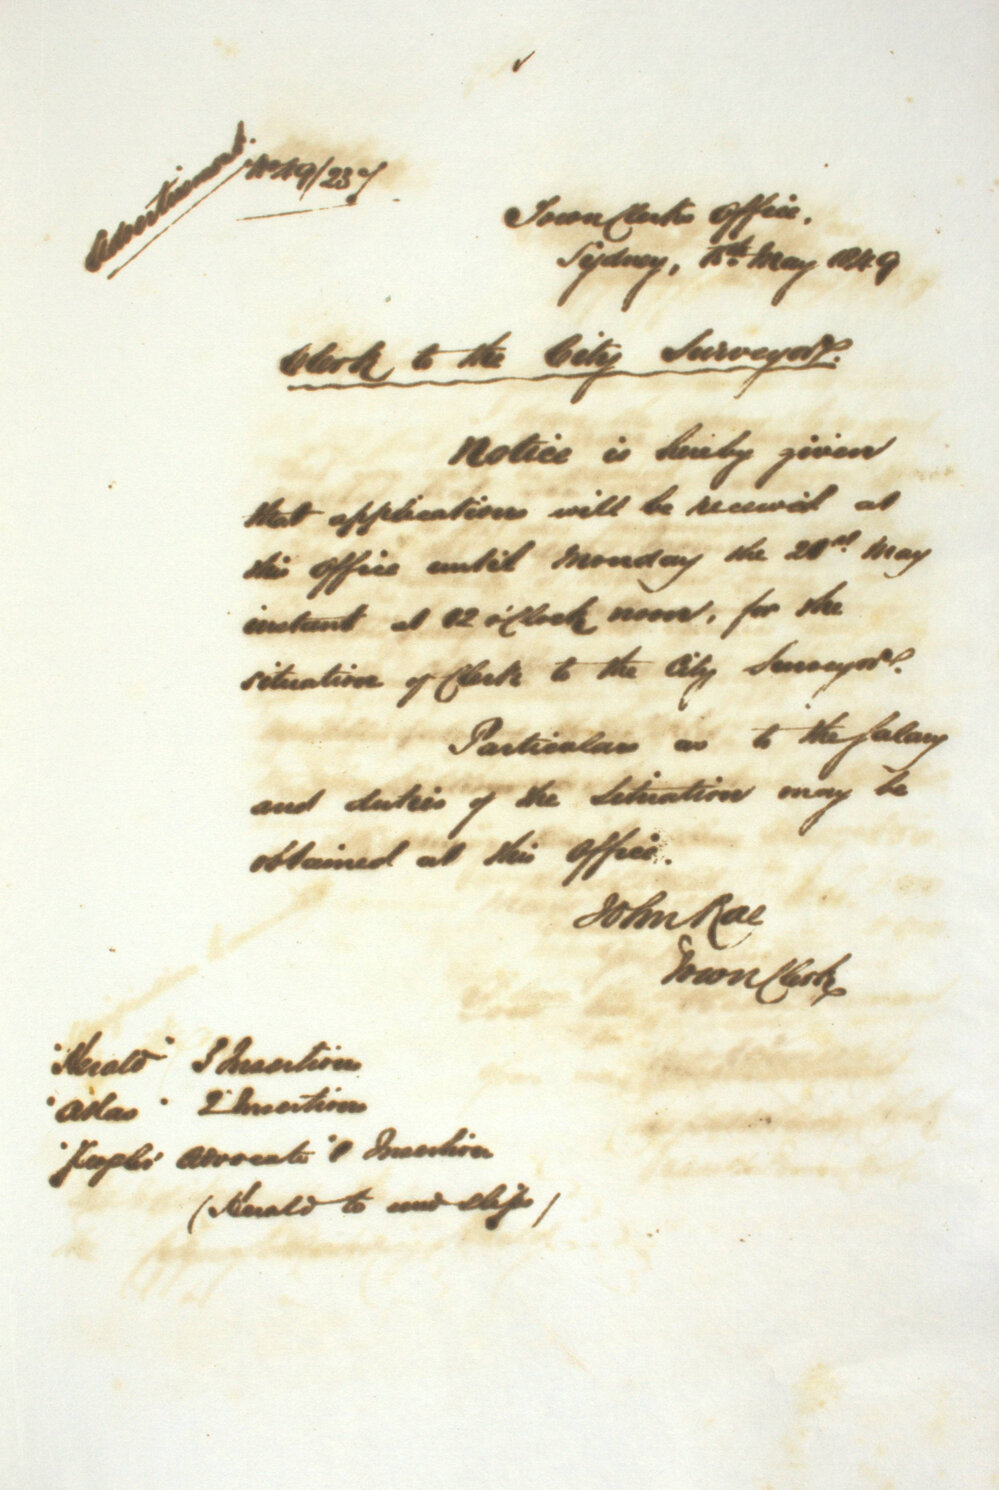 Advertisement. No 49/237
Town Clerks Office.
Sydney, May 1849
Clerk to the City Surveyor.
Notice is hereby given
that applications will be received at
this Office until Monday the 21st May
instant at 12 o'Clock noon, for the
situation of Clerk to the City Surveyor.
Particulars as to the Salary
and duties of the situation may be
obtained at this Office.
John Rae
Town Clerk
"Herald" 3 Insertions
"Atlas" 2 Insertions
"People's Advocate" Insertion
(Herald to send slips)